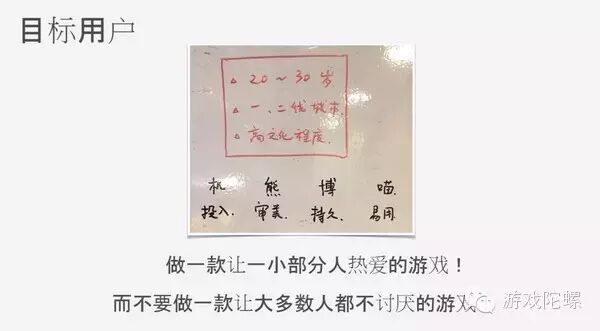 目标用户
△ 20～30岁.
△ 一、二线城市.
△ 高文化程度.
机 熊 博 喵.
投入. 审美. 持久. 易用.
做一款让一小部分人热爱的游戏！
而不要做一款让大多数人都不讨厌的游戏
游戏陀螺